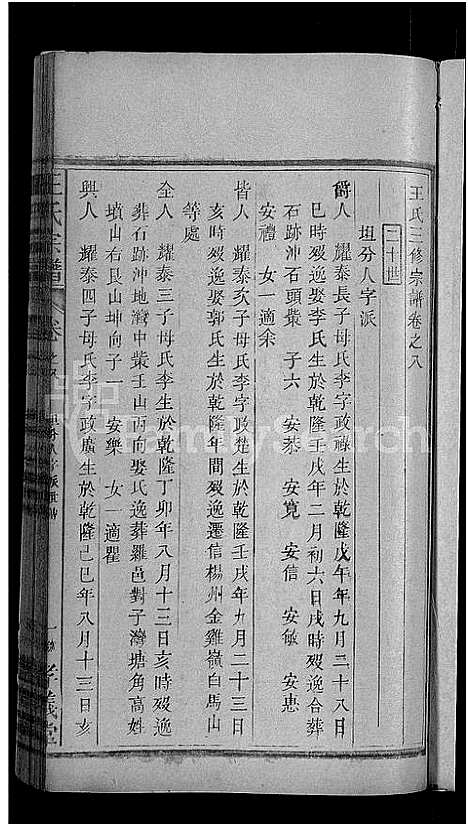 王氏三修宗譜卷之八
二十世
坦分人字派
爵人 耀泰長子母氏李字政祿生於乾隆戊午年九月二十八日
巳時歿逸娶氏李生於乾隆壬戌年二月初六日戌時歿逸合葬
石跡沖石頭業 子六 安泰 安寬 安信 安敏 安忠
安禮 女一適余
皆人 耀泰次子母氏李字政楚生於乾隆壬戌年九月二十三日
亥時歿逸娶郭氏生於乾隆年間歿逸遷信楊州金雞嶺白馬山
等處
全人 耀泰三子母氏李生於乾隆丁卯年八月十三日亥時歿逸
葬石跡沖地灣中業壬山丙向娶氏逸葬羅邑對子灣塘角高姓
墳山右艮山坤向子一 安樂 女一適瞿
興人 耀泰四子母氏李字政廣生於乾隆己巳年八月十三日亥
王氏宗譜
卷之八
坦分人字派世傳
一
孝義堂
FamilySearch